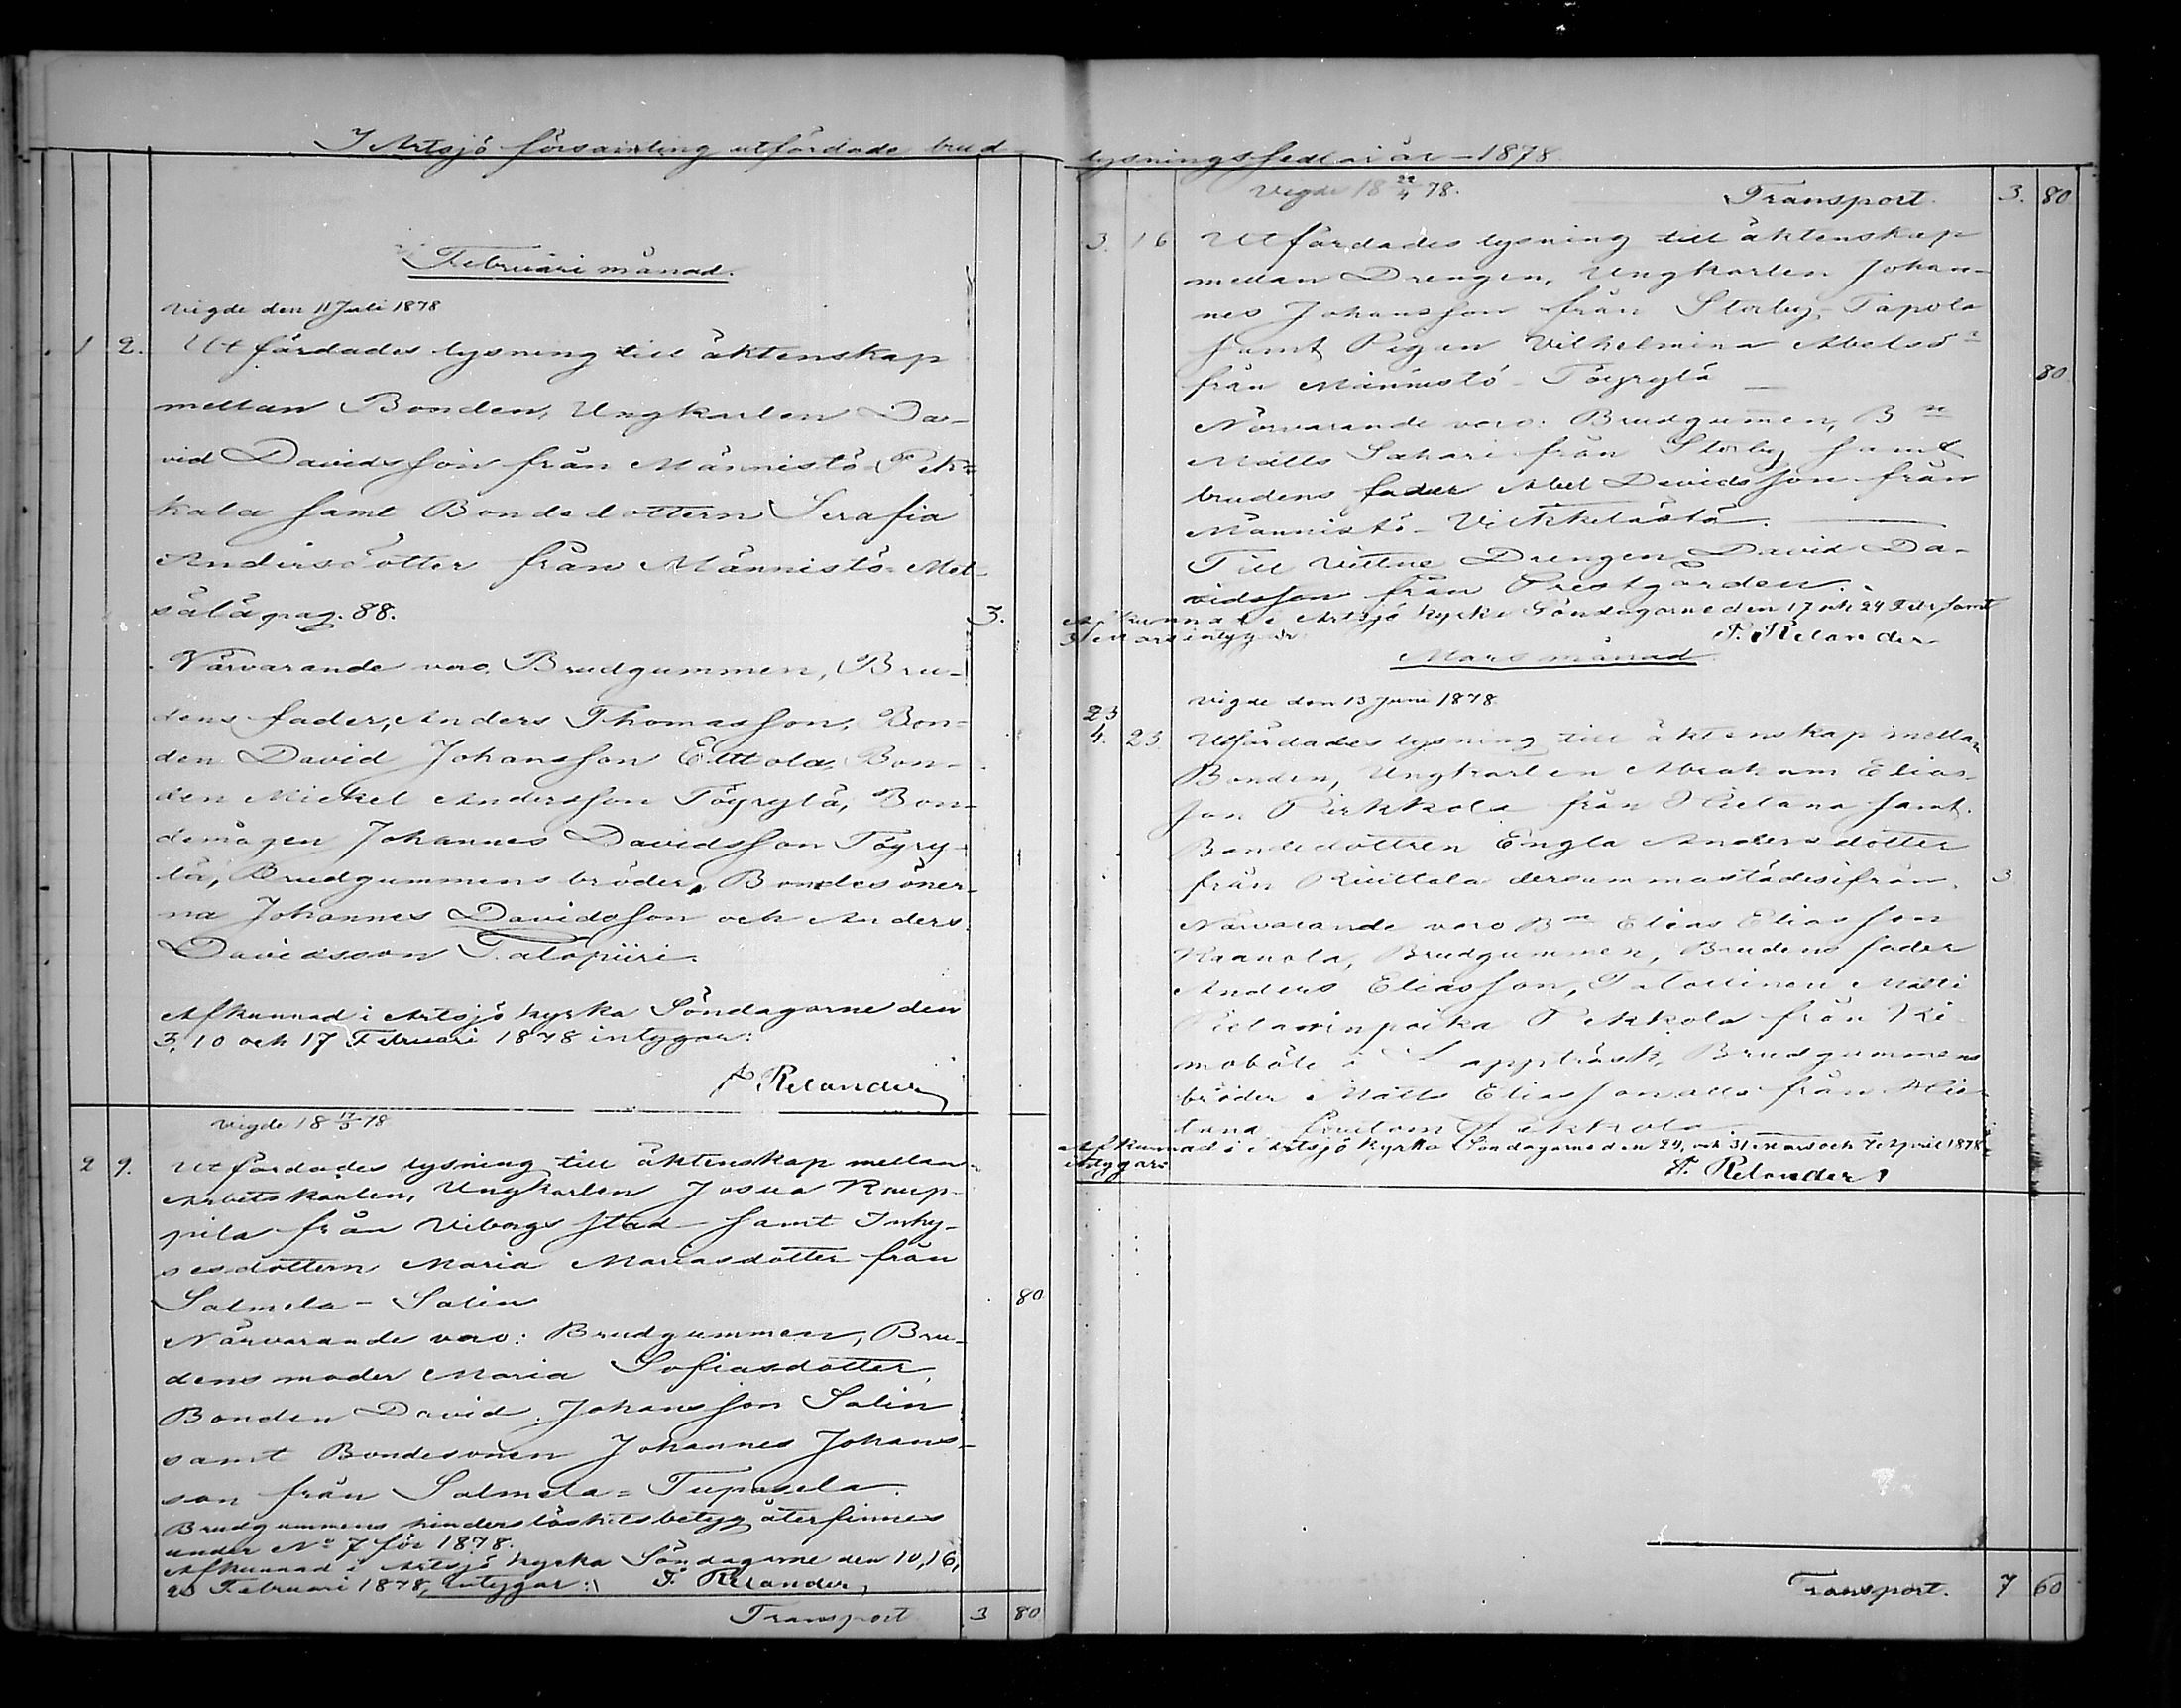 I Artsjö församling utfärdade brud-
Februari månad.
Vigde den 11 Juli 1878
1 2. Utfärdades lysning till äktenskap
mellan Bonden, Ungkarlen Da-
vid Davidsson från Männistö-Pek-
kala samt Bondedottern Serafia
Andersdotter från Männistö-Met-
sälä pag. 88. 3.
Närvarande voro, Brudgummen, Bru-
dens fader, Anders Thomasson, Bon-
den David Johansson Ettola, Bon-
den Mickel Andersson Töyrylä, Bon-
demågen Johannes Davidsson Töyry-
lä, Brudgummens bröder, Bondesöner-
na Johannes Davidsson och Anders
Davidsson Talopiiri.
Afkunnad i Artsjö kyrka Söndagarne den
3, 10 och 17 Februari 1878 intygar:
F. Relander
Vigde 18 17/3 78
2 9. Utfärdades lysning till äktenskap mellan
Arbetskarlen, Ungkarlen Josua Kaup-
pila från Viborgs stad samt Inhy-
sesdottern Maria Mariasdotter från
Salmela - Salin 80
Närvarande voro: Brudgummen, Bru-
dens moder Maria Sofiasdotter,
Bonden David Johansson Salin
samt Bondesonen Johannes Johans-
son från Salmela = Tupasela.
Brudgummens hinderslöshetsbetyg återfinnes
under No 7 för 1878.
Afkunnad i Artsjö kyrka Söndagarne den 10, 16,
Februari 1878, intygar: F. Relander
Transport 3 80
lysningssedlar år - 1878
Vigde 18 22/4 78. Transport. 3. 80
3. 16 Utfärdades lysning till äktenskap
mellan Drengen, Ungkarlen Johan-
nes Johansson från Storby-Tapola
samt Pigan Vilhelmina Abelsdr
från Männistö - Töyrylä 80
Närvarande voro: Brudgummen, Bn
Matts Sakari från Storby samt
brudens fader Abel Davidsson från
Männistö -
Till Vittne Drengen David Da-
vidsson från Prestgården.
Afkunnad i Artsjö kyrka Söndagarne den 17 och 24 Febr. samt
3 Mars intygar F. Relander
Mars månad
Vigde den 13 Juni 1878
23
4. 23 Utfärdades lysning till äktenskap mellan
Bonden, Ungkarlen Abraham Elias-
son Pekkola från Hietana samt
Bondedottren Engla Andersdotter
från Kivittala dersammastädesifrån. 3
Närvarande voro Bn Elias Eliasson
Kaanola, Brudgummen, Brudens fader
Anders Eliasson, Matti
Pekkola från Ki-
moböle i Lappträsk, Brudgummens
bröder Matts Eliasson alls från Hie-
tana Pekkola
Afkunnad i Artsjö kyrka Söndagarne den 24, och 31 Mars och 7 April 1878
intygar: F. Relander
Transport. 7 60